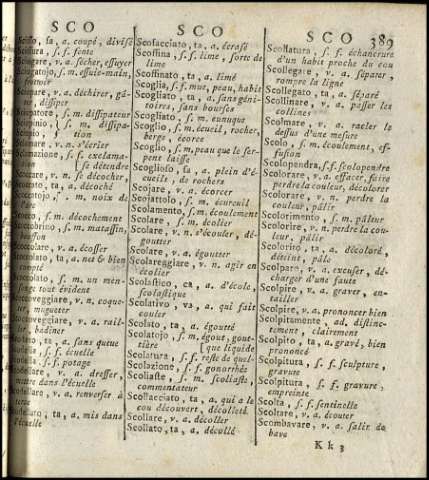 SCO
SCO
SCO
389
Scisso, sa, a. coupé, divisé
Scissura, s. f. fente
Sciugare, v. a. sécher, essuyer
Sciugatojo, s. m. essuie-main,
frottoir
Sciupare, v. a. déchirer, gâ-
ter, dissiper
Sciupatore, s. m. dissipateur
s. m. dissipa-
tion
v. n. s'écrier
s. f. exclama-
se détendre
v. n. se décocher,
ta, a. décoché
s. m. noix de
l'arc
s. m. décochement
s. m. matassin,
v. a. écosser
ta, a. net & bien
compté
s. m. un men-
songe tout évident
Scoccoveggiare, v. n. coque-
ter, mugueter
v. a. rail-
ler, badiner
ta, a. sans queue
s. f. écuelle
s. f. potage
Scodellare, v. a. dresser,
mettre dans l'écuelle
v. a. renverser à
terre
ta, a. mis dans
l'écuelle
Scofacciato, ta, a. écrasé
Scoffina, s. f. lime, sorte de
lime
Scoffinato, ta, a. limé
Scoglia, s. f. mue, peau, habit
Scogliato, ta, a. sans géni-
toires, sans bourses
Scogliato, s. m. eunuque
Scoglio, s. m. écueil, rocher,
berge, écorce
Scoglio, s. m. peau que le ser-
pent laisse
Scoglioso, sa, a. plein d'é-
cueils, de rochers
Scojare, v. a. écorcer
Scojattolo, s. m. écureuil
Scolamento, s. m. écoulement
Scolare, s. m. écolier
Scolare, v. n. s'écouler, dé-
goutter
Scolare, v. a. égoutter
Scolareggiare, v. n. agir en
écolier
Scolastico, ca, a. d'école,
scolastique
Scolativo, va, a. qui fait
couler
Scolato, ta, a. égoutté
Scolatojo, s. m. égout, gout-
tière
Scolatura, s. f. reste de quel-
que liquide
Scolazione, s. f. gonorrhée
Scoliaste, s. m. scoliaste,
commentateur
Scollacciato, ta, a. qui a le
cou découvert, décolleté
Scollare, v. a. décoller
Scollato, ta, a. décollé
Scollatura, s. f. échancrure
d'un habit proche du cou
Scollegare, v. a. séparer,
rompre la ligne
Scollegato, ta, a. séparé
Scollinare, v. a. passer les
collines
Scolmare, v. a. racler le
dessus d'une mesure
Scolo, s. m. écoulement, ef-
fusion
Scolopendra, s. f. scolopendre
Scolorare, v. a. effacer, faire
perdre la couleur, décolorer
Scolorare, v. n. perdre la
couleur, pâlir
Scolorimento, s. m. pâleur
Scolorire, v. n. perdre la cou-
leur, pâlir
Scolorito, ta, a. décoloré,
déteint, pâle
Scolpare, v. a. excuser, dé-
charger d'une faute
Scolpire, v. a. graver, en-
tailler
Scolpire, v. a. prononcer bien
Scolpitamente, ad. distinc-
tement, clairement
Scolpito, ta, a. gravé, bien
prononcé
Scolpitura, s. f. sculpture,
gravure
Scolpitura, s. f. gravure,
empreinte
Scolta, s. f. sentinelle
Scoltare, v. a. écouter
Scombavare, v. a. salir de
bave
Kk 3